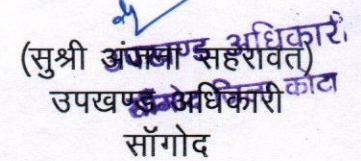 (सुश्री अंजना सहरावत)
उपखण्ड अधिकारी
सॉगोद
उपखण्ड अधिकारी
जिला कोटा